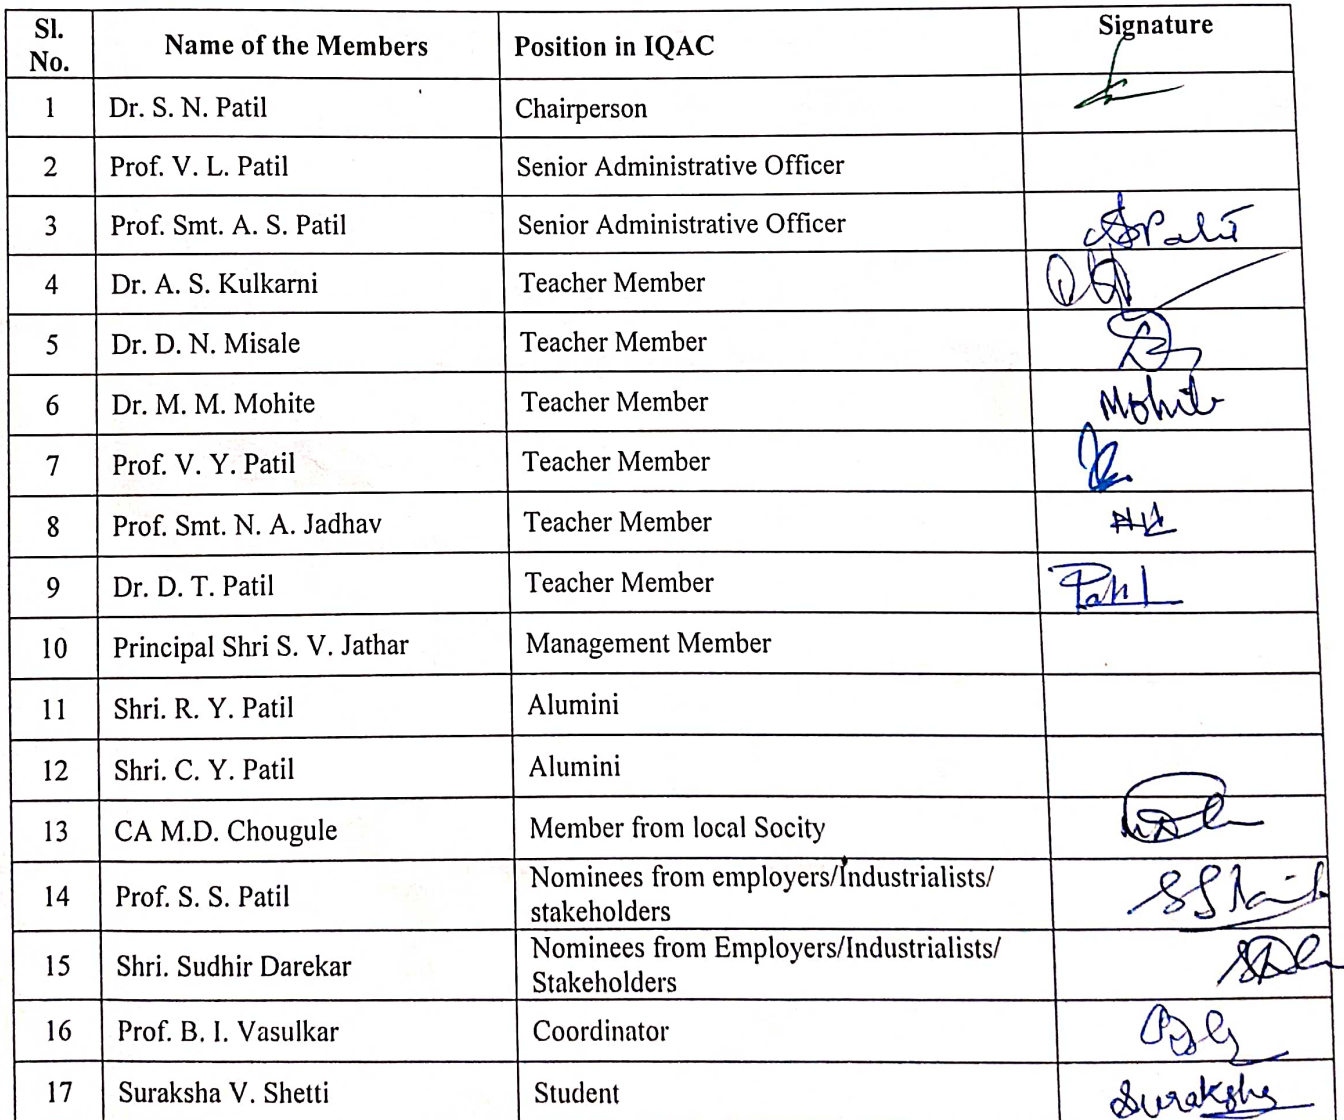 Sl. No. Name of the Members Position in IQAC Signature
1 Dr. S. N. Patil Chairperson
2 Prof. V. L. Patil Senior Administrative Officer
3 Prof. Smt. A. S. Patil Senior Administrative Officer ASPatil
4 Dr. A. S. Kulkarni Teacher Member
5 Dr. D. N. Misale Teacher Member
6 Dr. M. M. Mohite Teacher Member Mohite
7 Prof. V. Y. Patil Teacher Member
8 Prof. Smt. N. A. Jadhav Teacher Member
9 Dr. D. T. Patil Teacher Member Patil
10 Principal Shri S. V. Jathar Management Member
11 Shri. R. Y. Patil Alumini
12 Shri. C. Y. Patil Alumini
13 CA M.D. Chougule Member from local Socity
14 Prof. S. S. Patil Nominees from employers/Industrialists/
stakeholders
15 Shri. Sudhir Darekar Nominees from Employers/Industrialists/
Stakeholders
16 Prof. B. I. Vasulkar Coordinator
17 Suraksha V. Shetti Student Suraksha